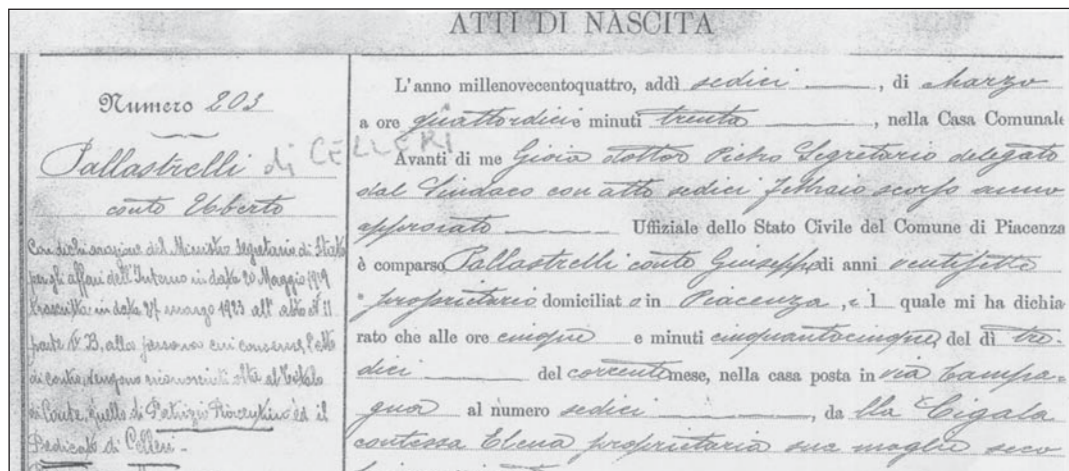 ATTI DI NASCITA
Numero 203
Pallastrelli di CELLERI
conte Uberto
Con dichiarazione del Ministro Segretario di Stato
per gli affari dell'Interno in data 20 Maggio 1919
trascritta in data 27 marzo 1923 all'atto N. 11
parte B, alla persona cui concerne l'atto
di contro, vengono riconosciuti oltre al titolo
di Conte, quello di Patrizio Piacentino ed il
Predicato di Celleri -
L'anno millenovecentoquattro, addì sedici, di Marzo
a ore quattordici e minuti trenta, nella Casa Comunale
Avanti di me Gioia dottor Pietro Segretario delegato
dal Sindaco con atto sedici febbraio scorso anno
approvato Uffiziale dello Stato Civile del Comune di Piacenza
è comparso Pallastrelli conte Giuseppe di anni ventisette
proprietario domiciliato in Piacenza, il quale mi ha dichia
rato che alle ore cinque e minuti cinquantacinque, del dì tre-
dici del corrente mese, nella casa posta in via Campa-
gna al numero sedici, dalla Cigala
contessa Elena proprietaria sua moglie seco